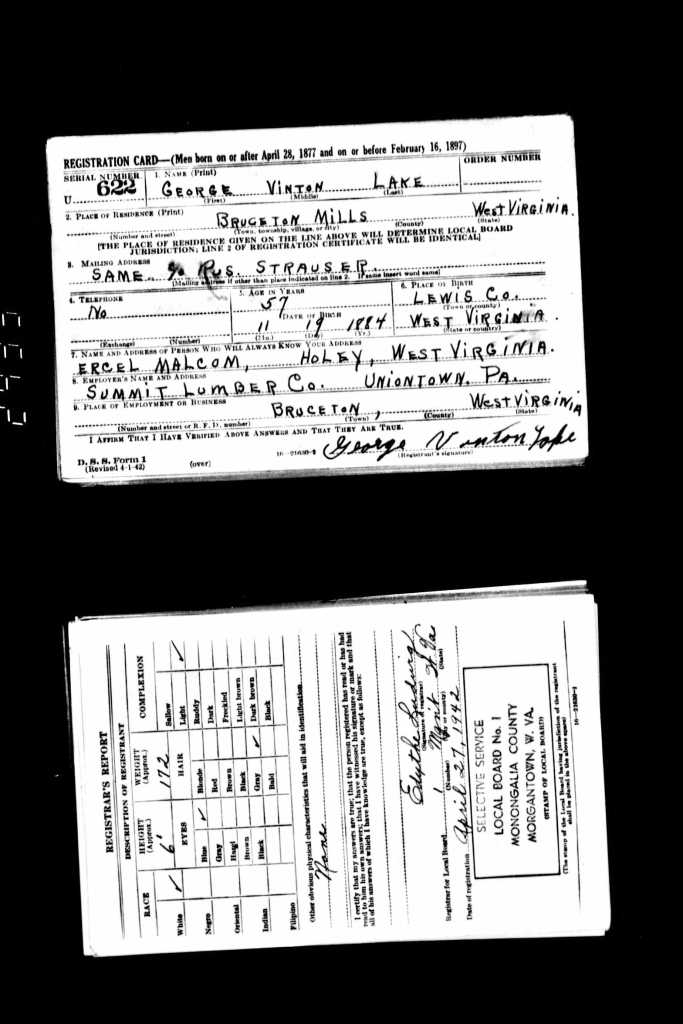 REGISTRATION CARD—(Men born on or after April 28, 1877 and on or before February 16, 1897)
SERIAL NUMBER
1. NAME (Print)
ORDER NUMBER
U 622
GEORGE VINTON LAKE
(First) (Middle) (Last)
2. PLACE OF RESIDENCE (Print)
BRUCETON MILLS WEST VIRGINIA.
(Number and street) (Town, township, village, or city) (County) (State)
[THE PLACE OF RESIDENCE GIVEN ON THE LINE ABOVE WILL DETERMINE LOCAL BOARD
JURISDICTION; LINE 2 OF REGISTRATION CERTIFICATE WILL BE IDENTICAL]
3. MAILING ADDRESS
SAME % RUS. STRAUSER.
[Mailing address if other than place indicated on line 2. If same insert word same]
4. TELEPHONE
5. AGE IN YEARS
6. PLACE OF BIRTH
No
57
LEWIS CO.
DATE OF BIRTH
(Town or county)
11 19 1884
WEST VIRGINIA.
(Exchange) (Number) (Mo.) (Day) (Yr.) (State or country)
7. NAME AND ADDRESS OF PERSON WHO WILL ALWAYS KNOW YOUR ADDRESS
ERCEL MALCOM, HOLEY, WEST VIRGINIA.
8. EMPLOYER'S NAME AND ADDRESS
SUMMIT LUMBER CO. UNIONTOWN. PA.
9. PLACE OF EMPLOYMENT OR BUSINESS
BRUCETON, WEST VIRGINIA
(Number and street or R. F. D. number) (Town) (County) (State)
I AFFIRM THAT I HAVE VERIFIED ABOVE ANSWERS AND THAT THEY ARE TRUE.
D. S. S. Form 1
(Revised 4-1-42) (over) 16—21630-2
George Vinton
(Registrant's signature)
REGISTRAR'S REPORT
DESCRIPTION OF REGISTRANT
RACE
HEIGHT (Approx.)
WEIGHT (Approx.)
COMPLEXION
6' 172
EYES
HAIR
White ✓ Blue ✓ Blonde Sallow
Light ✓
Negro Gray Red Ruddy
Oriental Hazel Brown Dark
Freckled
Indian Brown Black Light brown
Black Gray ✓ Dark brown
Filipino Bald Black
Other obvious physical characteristics that will aid in identification
None
I certify that my answers are true; that the person registered has read or has had
read to him his own answers; that I have witnessed his signature or mark and that
all of his answers of which I have knowledge are true, except as follows:
Edythe Ludwig
(Signature of registrar)
Registrar for Local Board 1 W. Va
(Number) (City or county) (State)
Date of registration April 27, 1942
SELECTIVE SERVICE
LOCAL BOARD No. 1
MONONGALIA COUNTY
MORGANTOWN, W. VA.
(STAMP OF LOCAL BOARD)
(The stamp of the Local Board having jurisdiction of the registrant
shall be placed in the above space)
16—21630-1